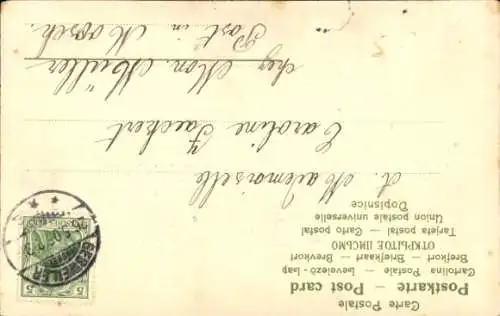 Carte Postale
Postkarte — Post card
Cartolina Postale — Levelező-Lap
Brefkort — Briefkaart — Brevkort
ОТКРЫТОЕ ПИСЬМО
Tarjeta postal — Carto postal
Union postale universelle
Dopisnice
A Mademoiselle
Caroline Jaeckert
chez Mon. Müller
Post in Moosch.
5 5
GEBWEILER